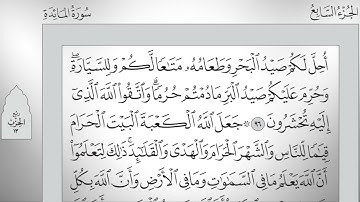 الجزء السابع
سورة المائدة
أُحِلَّ لَكُمْ صَيْدُ الْبَحْرِ وَطَعَامُهُ مَتَاعًا لَّكُمْ وَلِلسَّيَّارَةِ ۖ
وَحُرِّمَ عَلَيْكُمْ صَيْدُ الْبَرِّ مَا دُمْتُمْ حُرُمًا ۗ وَاتَّقُوا اللَّهَ الَّذِي
إِلَيْهِ تُحْشَرُونَ ٩٦ ۞ جَعَلَ اللَّهُ الْكَعْبَةَ الْبَيْتَ الْحَرَامَ
قِيَامًا لِّلنَّاسِ وَالشَّهْرَ الْحَرَامَ وَالْهَدْيَ وَالْقَلَائِدَ ۚ ذَٰلِكَ لِتَعْلَمُوا
أَنَّ اللَّهَ يَعْلَمُ مَا فِي السَّمَاوَاتِ وَمَا فِي الْأَرْضِ وَأَنَّ اللَّهَ بِكُلِّ
ربع
الحزب
١٣